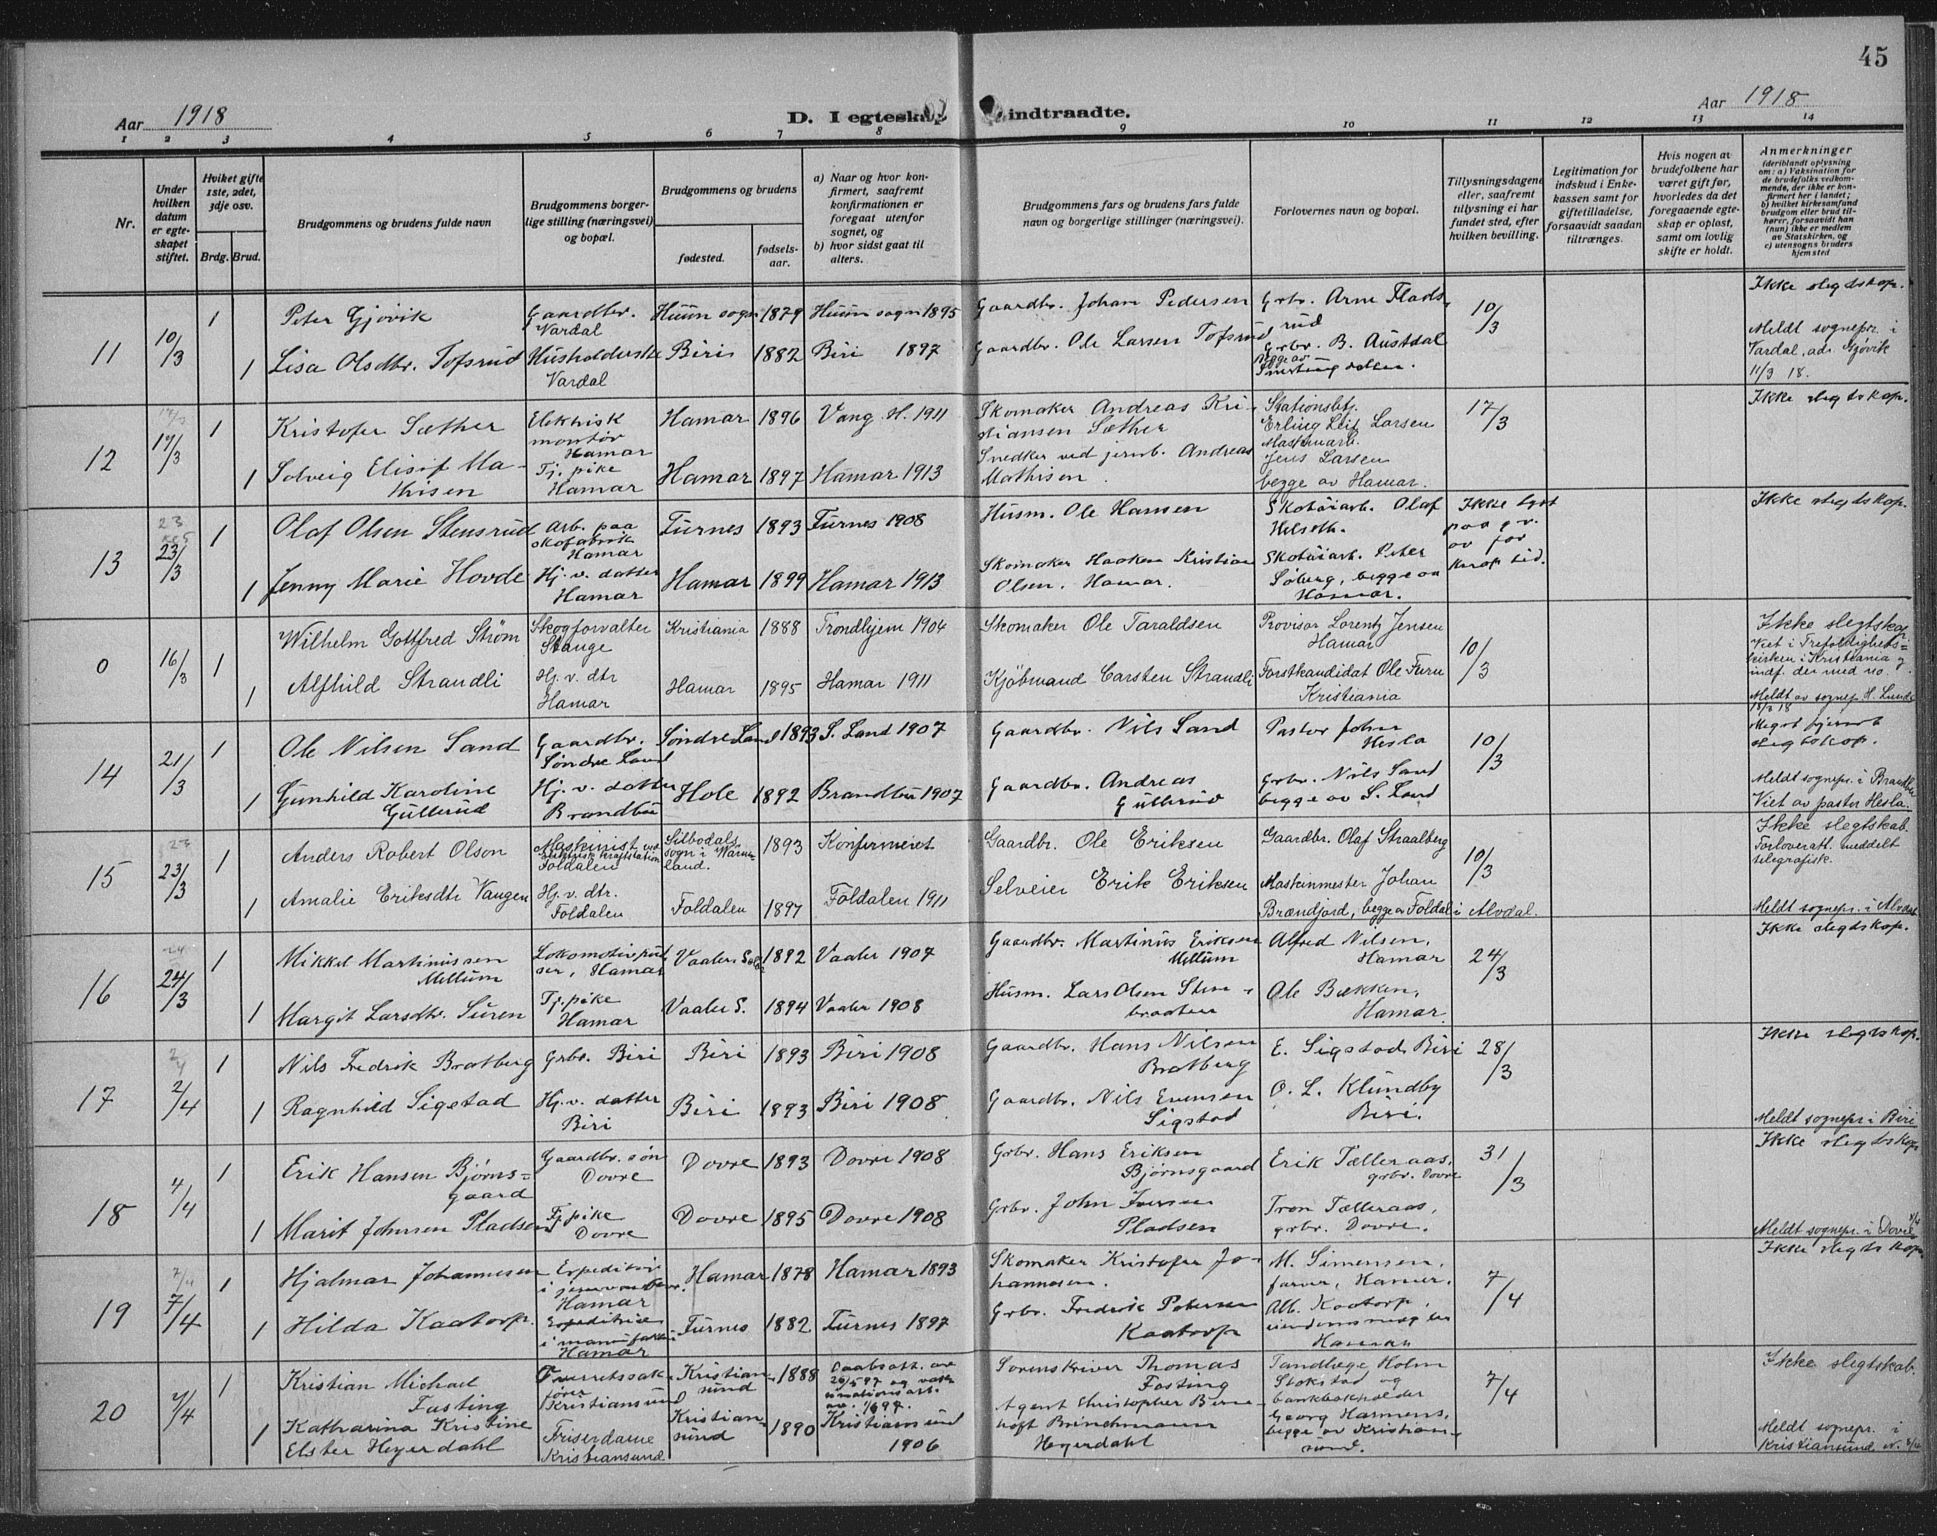 45
Aar 1918
D. I egteskap indtraadte.
Aar 1918
1 2 3 4 5 6 7 8 9 10 11 12 13 14
Nr.
Under hvilken datum er egteskapet stiftet.
Hviket gifte 1ste, 2det, 3dje osv.
Brdg. Brud.
Brudgommens og brudens fulde navn
Brudgommens borgerlige stilling (næringsvei) og bopæl.
Brudgommens og brudens
fødested.
fødselsaar.
a) Naar og hvor konfirmert, saafremt konfirmationen er foregaat utenfor sognet, og
b) hvor sidst gaat til alters.
Brudgommens fars og brudens fars fulde navn og borgerlige stillinger (næringsvei).
Forlovernes navn og bopæl.
Tillysningsdagene eller, saafremt tillysning ei har fundet sted, efter hvilken bevilling.
Legitimation for indskud i Enkekassen samt for giftetilladelse, forsaavidt saadan tiltrænges.
Hvis nogen av brudefolkene har været gift før, hvorledes da det foregaaende egteskap er opløst, samt om lovlig skifte er holdt.
Anmerkninger
(deriblandt oplysning om: a) Vaksination for de brudefolks vedkommende, der ikke er konfirmert her i landet; b) hvilket kirkesamfund brudgom eller brud tilhører, forsaavidt han (hun) ikke er medlem av Statskirken, og c) utensogns bruders hjemsted
11 10/3 1 Peter Gjøvik Gaardbr. Vardal Huun sogn 1879 Huun sogn 1895 Gaardbr. Johan Pedersen Grbr. Arne Fladsrud 10/3 Ikke slegtskap.
1 Lisa Olsdtr. Tofsrud Husholderske Vardal Biri 1882 Biri 1897 Gaardbr. Ole Larsen Tofsrud Grbr. B. Austdal begge av Meldt sognepr. i Vardal, adr. Gjøvik 11/3 18.
12 17/3 17/3 1 Kristofer Sæther Elektrisk montör Hamar Hamar 1896 Vang H. 1911 Skomaker Andreas Kristiansen Sæther Stationsbtj. Erling Leif Larsen 17/3 Ikke slegtskap.
1 Solveig Elisif Mathisen Tj. pike Hamar Hamar 1897 Hamar 1913 Snedker ved jernb. Andreas Mathisen. Maskinarb. Jens Larsen begge av Hamar.
13 23 23/3 1 Olaf Olsen Stensrud Arb. paa skofabrik Hamar Furnes 1893 Furnes 1908 Husm. Ole Hansen Skotöiarb. Olaf Helseth. Ikke lyst paa gr. av for knap tid. Ikke slegtskap.
1 Jenny Marie Hovde Hj. v. datter Hamar Hamar 1899 Hamar 1913 Skomaker Haaken Kristian Olsen, Hamar. Skotöiarb. Peter Söberg, begge av Hamar.
0 16/3 1 Wilhelm Gottfred Strøm Skogforvalter Stange Kristiania 1888 Trondhjem 1904 Skomaker Ole Taraldsen Provisor Lorentz Jensen Hamar 10/3 Ikke slegtskap Viet i Trefoldighetskirken i Kristiania og indf. der med no.
1 Alfhild Strandli Hj. v. dtr Hamar Hamar 1895 Hamar 1911 Kjøbmand Carsten Strandli Forstkandidat Ole Furu Kristiania Meldt av sognepr. H. Lunde 18/3 18
14 21/3 1 Ole Nilsen Sand Gaardbr. Söndre Land Söndre Land 1893 S. Land 1907 Gaardbr. Nils Sand Pastor John Hesla 10/3 Meget fjernt slegtskap.
1 Gunhild Karoline Gullerud Hj. v. datter Brandbu Hole 1892 Brandbu 1907 Gaardbr. Andreas Gullerud Grbr. Nils Sand begge av S. Land Meldt sognepr. i Brandbu Viet av pastor Hesla.
15 23 23/3 1 Anders Robert Olson Maskinist ved elektrisk kraftstation Foldalen Silbodals sogn i Wärmland. 1893 Konfirmeret Gaardbr. Ole Eriksen Gaardbr. Olaf Straalberg 10/3 Ikke slegtskab. Forloveratt. meddelt telegrafisk.
1 Amalie Eriksdtr Vangen Hj. v. dtr. Foldalen Foldalen 1897 Foldalen 1911 Selveier Erik Eriksen Maskinmester Johan Brændjord, begge av Foldal i Alvdal. Meldt sognepr. i Alvdal
16 24 24/3 1 Mikkel Martinussen Mellum Lokomotivpudser, Hamar Vaaler Solør 1892 Vaaler 1907 Gaardbr. Martinus Eriksen Mellum Alfred Nilsen, Hamar 24/3 Ikke slegtskap.
1 Margit Larsdtr. Suren Tj. pike Hamar Vaaler S. 1894 Vaaler 1908 Husm. Lars Olsen Stenbraaten Ole Bækken, Hamar.
17 2/4 2/4 1 Nils Fredrik Bratberg Grbr. Biri Biri 1893 Biri 1908 Gaardbr. Hans Nilsen Bratberg E. Sigstad, Biri 28/3 Ikke slegtskap.
1 Ragnhild Sigstad Hj. v. datter Biri Biri 1893 Biri 1908 Gaardbr. Nils Evensen Sigstad O. L. Klundby Biri. Meldt sognepr. i Biri
18 4/4 1 Erik Hansen Bjørnsgaard Gaardbr. søn Dovre Dovre 1893 Dovre 1908 Grbr. Hans Eriksen Bjørnsgaard Erik Tælleraas, grbr. Dovre 31/3 Ikke slegtskap
1 Marit Johnsen Pladsen Tj. pike Dovre Dovre 1895 Dovre 1908 Grbr. John Iversen Pladsen Tron Tælleraas, grbr. Dovre. Meldt sognepr. i Dovre 4/4
19 7/4 7/4 1 Hjalmar Johannesen Expeditör i Hamar Hamar 1878 Hamar 1893 Skomaker Kristofer Johannesen. M. Simensen, farver, Hamar. 7/4 Ikke slegtskap
1 Hilda Kaatorp. Expeditrice i manufakt. Hamar Furnes 1882 Furnes 1897 Grbr. Fredrik Petersen Kaatorp Alb. Kaatorp, Hamar
20 7/4 1 Kristian Michael Fasting Overretssakfører Kristiansund Kristiansund 1888 Daabsatt. av 20/5 97 og vaksinationsatt. av Sorenskriver Thomas Fasting Tandlæge Holm Stokstad og bankbokholder 7/4 Ikke slegtskab.
1 Katharina Kristine Elster Heyerdahl Friserdame Kristiansund Kristiansund 1890 Kristiansund 1906 Agent Christopher Bernhoft Brinchmann Heyerdahl Georg Harmens, begge av Kristiansund. Meldt sognepr. i Kristiansund N. 8/4